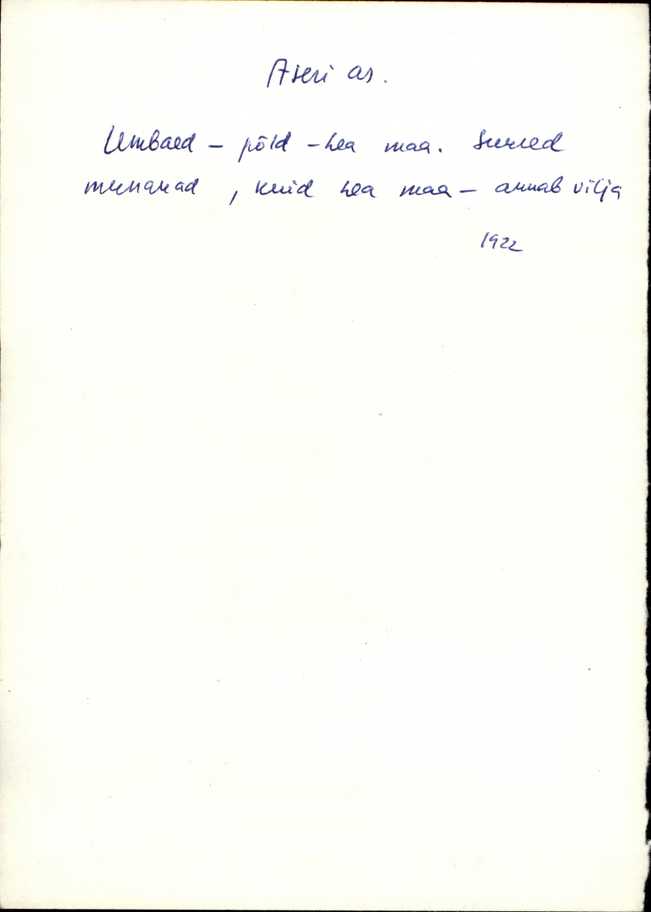 Aseri as.
Umbaed – põld – hea maa. Suured
munakad, kuid hea maa – annab vilja
1922